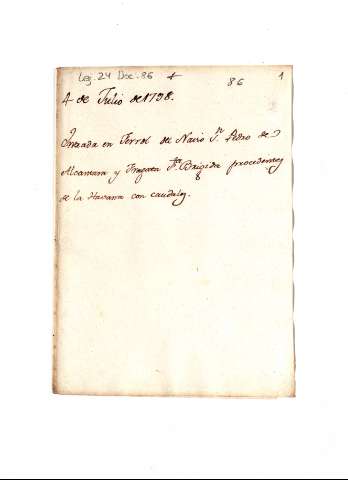 Leg. 24 Doc. 86
86
1
4 de Julio de 1798.
Entrada en Ferrol del Navio Sn. Pedro de
Alcantara y Fragata Sta. Brigida procedentes
de la Havana con caudales.